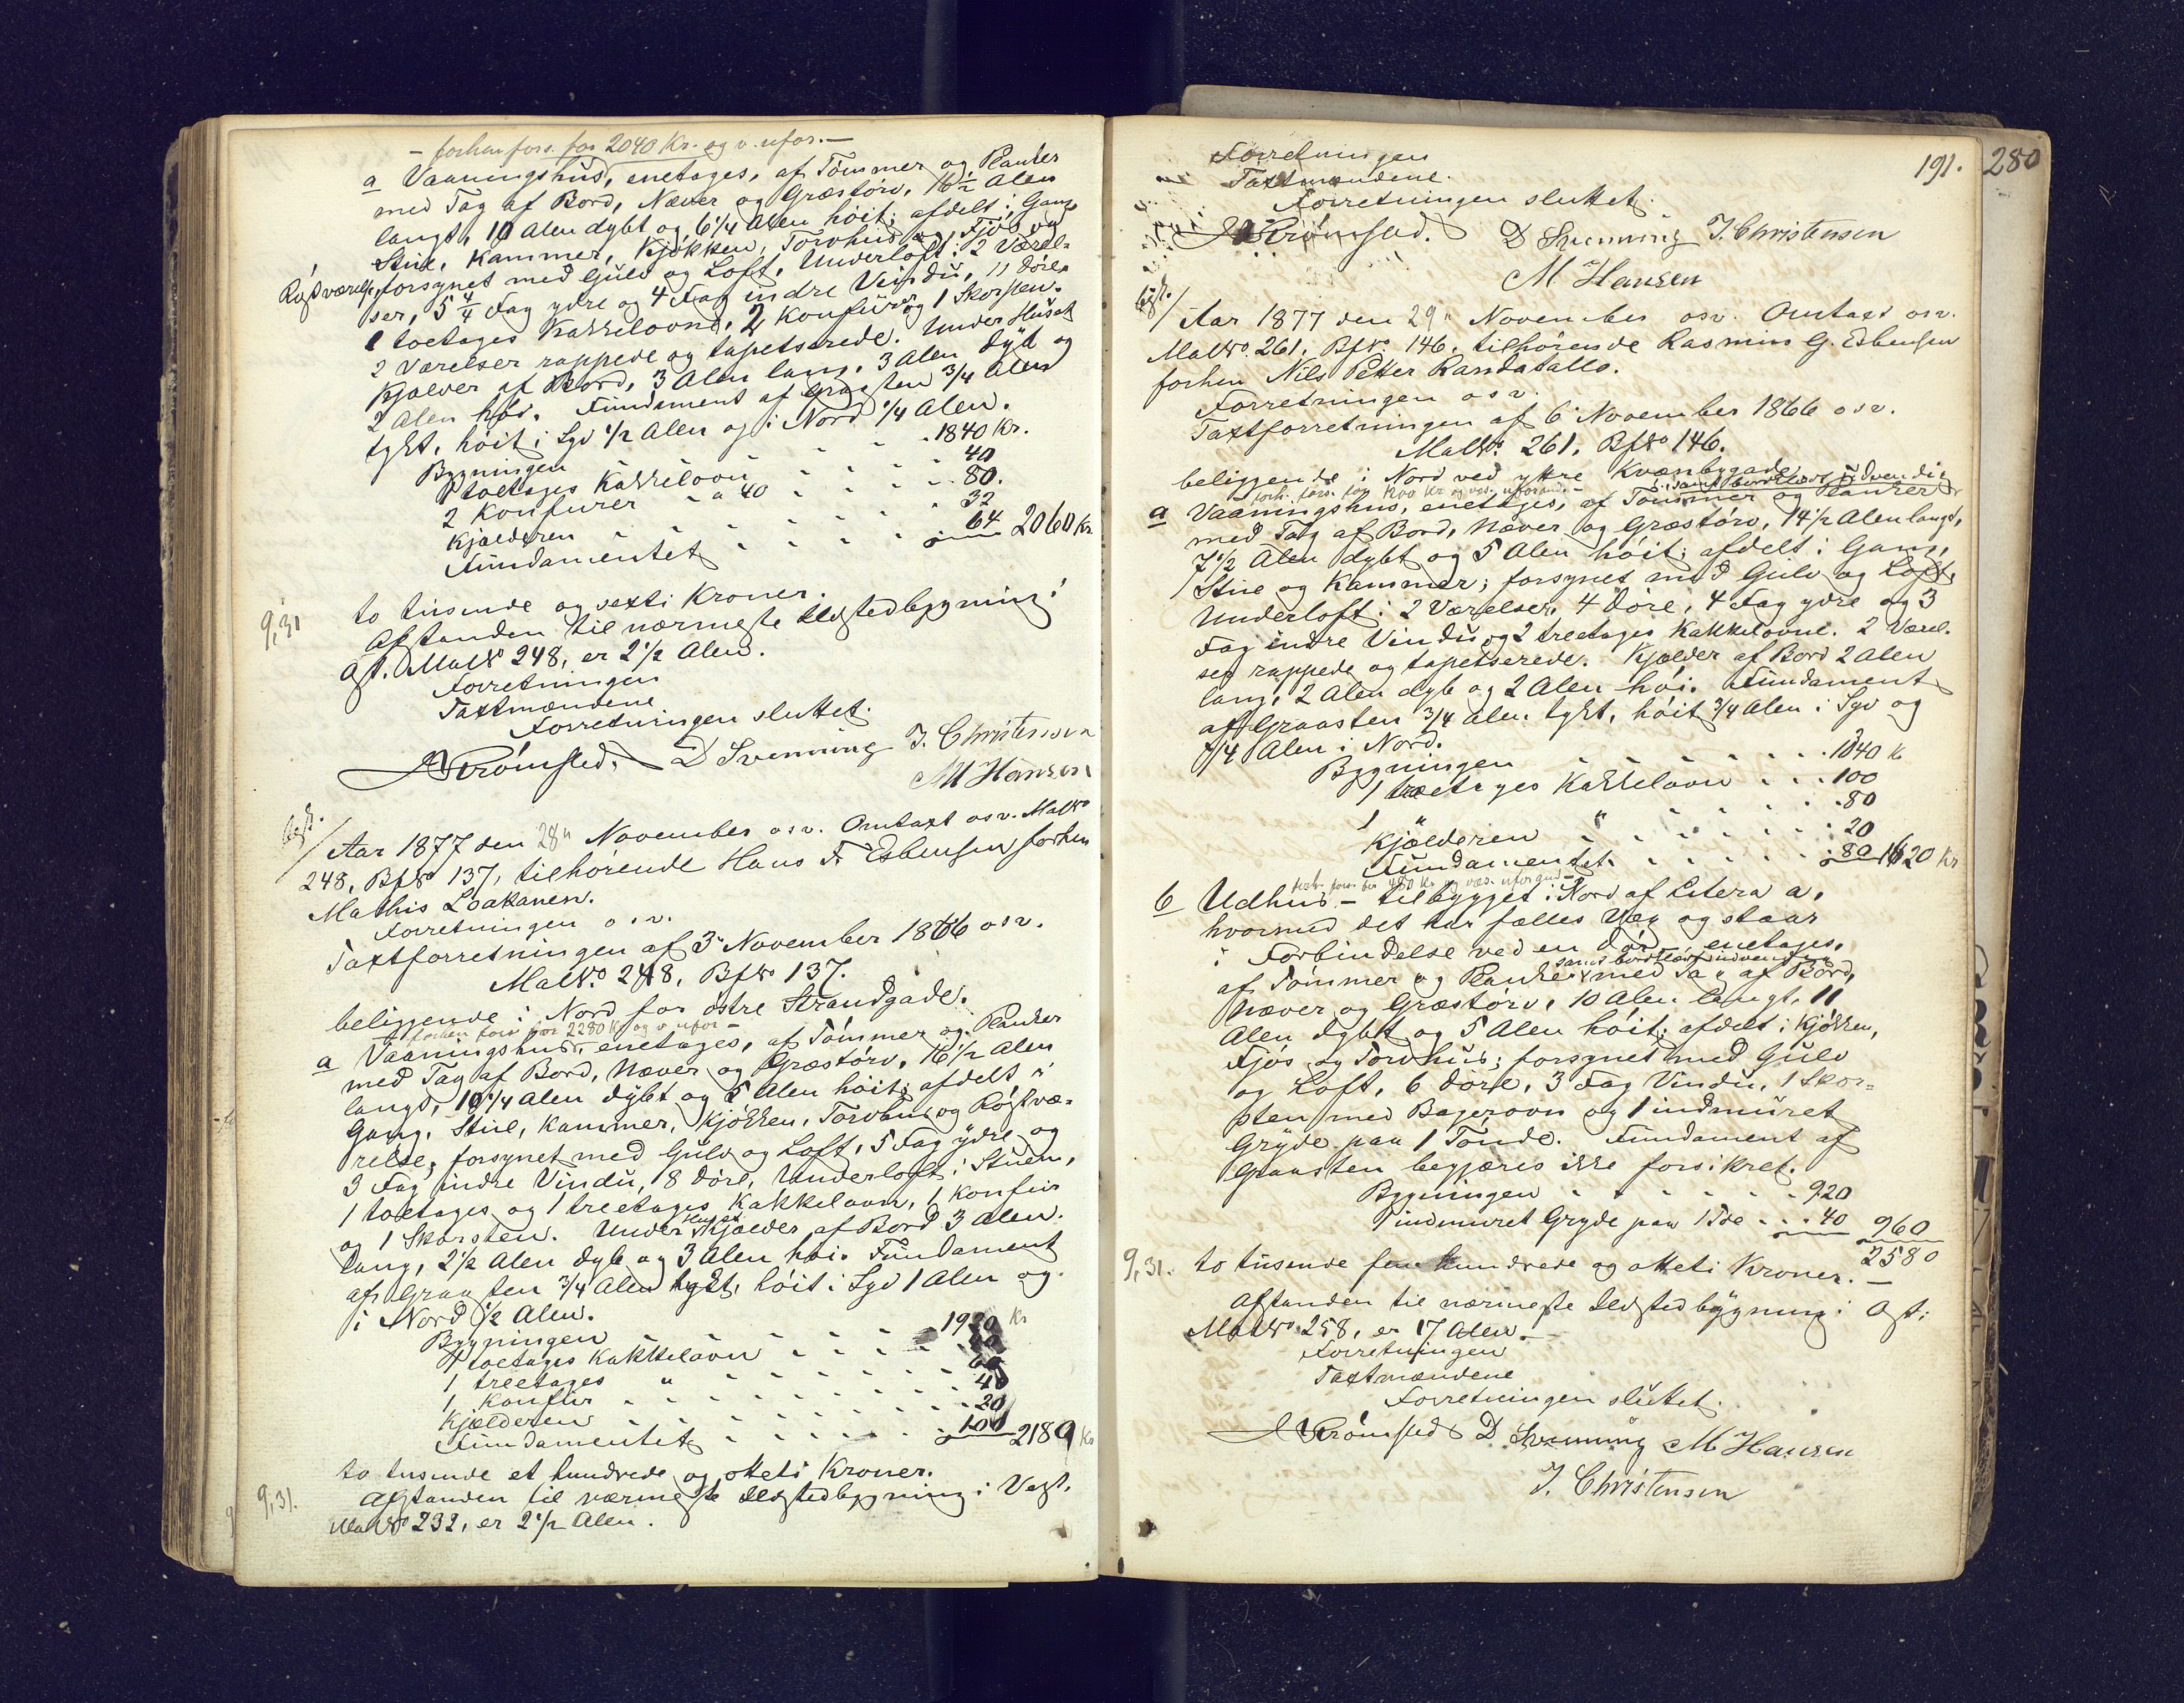 - forhen fors. for 2040 Kr. og v. ufor. -
a Vaaningshus, enetages, af Tømmer og Planker
med Tag af Bord, Næver og Græstørv, 16 1/2 Alen
langt, 10 Alen dybt og 6 1/4 Alen høit; afdelt i Gang
Stue, Kammer, Kjøkken, Torvhus og Fjøs og
Røgtværelse, forsynet med Gulv og Loft. Underloft i 2 Værel-
ser, 5 4/4 Fag ydre og 4 Fag indre Vindu, 11 Døre,
1 toetages Kakkelovne, 2 Konfurer og 1 Skorsten.
2 Værelser rappede og tapetserede. Under Huset
Kjælder af Bord, 3 Alen lang, 3 Alen dyb og
2 Alen høi. Fundament af Graasten 3/4 Alen
tykt, høit i Syd 1/2 Alen og i Nord 1/4 Alen.
Bygningen 1840 Kr.
1 toetages Kakkelovn 40
2 Konfurer a 40 80.
Kjælderen 32
Fundamentet 64 2060 Kr.
9,31 to tusende og sexti Kroner.
Afstanden til nærmeste Ildstedbygning i
Øst. MatNo 248, er 2 1/2 Alen.
Forretningen
Taxtmændene
Forretningen sluttet.
A Strømsted. D Svenning J. Christensen
M Hansen
Aar 1877 den 28n November osv. Omtaxt osv. MatNo
248, BfNo 137, tilhørende Hans F Esbensen forhen
Mathis Loakanen.
Forretningen osv.
Taxtforretningen af 3 November 1866 osv.
MatNo. 248, BfNo 137.
beliggende i Nord for østre Strandgade.
forhen fors for 2280 Kr og v. ufor -
a Vaaningshus, enetages, af Tømmer og Planker
med Tag af Bord, Næver og Græstørv, 16 1/2 Alen
langt, 10 1/4 Alen dybt og 5 Alen høit; afdelt i
Gang, Stue, Kammer, Kjøkken, Torvhus og Røgtvæ-
relse; forsynet med Gulv og Loft, 5 Fag ydre og
3 Fag indre Vindu, 8 Døre, Underloft i Stuen,
1 toetages og 1 treetages Kakkelovn, 1 Konfur
og 1 Skorsten. Under Huset Kjælder af Bord 3 Alen
lang, 2 1/2 Alen dyb og 3 Alen høi. Fundament
af Graasten 3/4 Alen tykt, høit i Syd 1 Alen og
i Nord 1/2 Alen.
Bygningen 1920 Kr
1 toetages Kakkelovn
1 treetages " 60
1 Konfur 40
Kjælderen 20
Fundamentet 100 2180 Kr
9,31. to tusende et hundrede og otteti Kroner.
Afstanden til nærmeste Ildstedbygning i Vest,
MatNo 232, er 2 1/2 Alen.
191. 280
Forretningen
Taxtmændene.
Forretningen sluttet.
A Strømsted. D Svenning J. Christensen
M Hansen
Aar 1877 den 29n November osv. Omtaxt osv.
MatNo. 261, BfNo. 146, tilhørende Rasmus G. Esbensen
forhen Nils Petter Randatallo.
Forretningen osv.
Taxtforretningen af 6 November 1866 osv.
MatNo. 261, BfNo 146.
beliggende i Nord ved yttre Kvænbygade
forh. fors. for Kr og v. ufor samt bordklædt udvendig
a Vaaningshus, enetages, af Tømmer og Planker
med Tag af Bord, Næver og Græstørv, 14 1/2 Alen langt,
7 1/2 Alen dybt og 5 Alen høit; afdelt i Gang,
Stue og Kammer; forsynet med Gulv og Loft,
Underloft i 2 Værelser, 4 Døre, 4 Fag ydre og 3
Fag indre Vindu og 2 treetages Kakkelovne. 2 Værel-
ser rappede og tapetserede. Kjælder af Bord 2 Alen
lang, 2 Alen dyb og 2 Alen høi. Fundament
af Graasten 3/4 Alen tykt, høit 3/4 Alen i Syd og
1/4 Alen i Nord.
Bygningen 1340 K
1 treetages Kakkelovn 100
1 " 80
Kjælderen 20
Fundamentet 80 1620 Kr
forh. fors. for 480 Kr og
b Udhus - tilbygget i Nord af Litera a,
hvormed det har fælles Væg og staar
i Forbindelse ved en Dør, enetages,
samt bordklædt indvendig
af Tømmer og Planker med Tag af Bord,
Næver og Græstørv, 10 Alen langt, 11
Alen dybt og 5 Alen høit; afdelt i Kjøkken,
Fjøs og Torvhus; forsynet med Gulv
og Loft, 6 Døre, 3 Fag Vindu, 1 Skor-
sten med Bagerovn og 1 indmuret
Gryde paa 1 Tønde. Fundament af
Graasten begjæres ikke forsikret.
Bygningen 920
1 indmuret Gryde paa 1 Tde 40 960
2580
9,31. to tusende fem hundrede og otteti Kroner. -
Afstanden til nærmeste Ildstedbygning i Øst:
MatNo 258, er 17 Alen.
Forretningen
Taxtmændene
Forretningen sluttet.
A Strømsted D Svenning M Hansen
J. Christensen